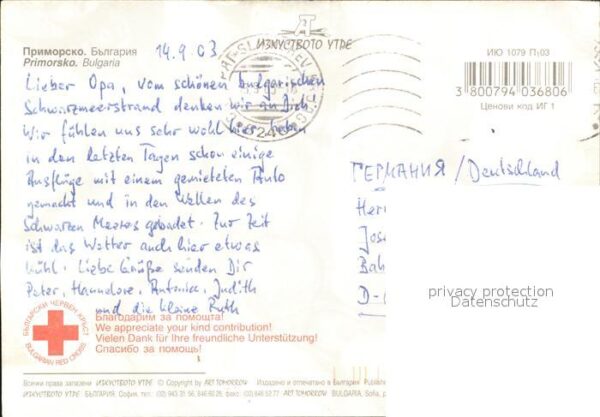 Приморско. България
Primorsko. Bulgaria
14.9.03
ИЗКУСТВОТО УТРЕ
ИЮ 1079 П±03
3 800794 036806
Ценови код ИГ 1
Lieber Opa, vom schönen bulgarischen
Schwarzmeerstrand denken wir an Dich
Wir fühlen uns sehr wohl hier, haben
in den letzten Tagen schon einige
Ausflüge mit einem gemieteten Auto
gemacht und in den Wellen des
Schwarzen Meeres gebadet. Zur Zeit
ist das Wetter auch hier etwas
kühl. Liebe Grüße senden Dir
Peter, Hannelore, Judith
und die kleine Ruth
ГЕРМАНИЯ / Deutschland
Her
Jose
Bah
D-
privacy protection
Datenschutz
БЪЛГАРСКИ ЧЕРВЕН КРЪСТ
BULGARIAN RED CROSS
Благодарим за помощта!
We appreciate your kind contribution!
Vielen Dank für Ihre freundliche Unterstützung!
Спасибо за помощь!
Всички права запазени ИЗКУСТВОТО УТРЕ © Copyright by ART TOMORROW Издадено и отпечатано в България Publishe
ИЗКУСТВОТО УТРЕ БЪЛГАРИЯ, София, тел. (02) 943 31 56, факс: (02) 846 52 77 ART TOMORROW BULGARIA, Sofia, p